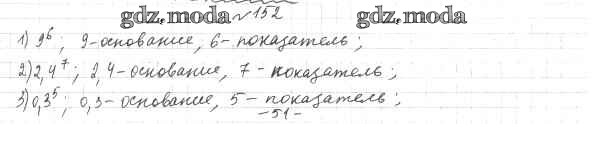 gdz.moda №152 gdz.moda
1) 9⁶; 9-основание, 6-показатель;
2) 2,4⁷; 2,4-основание, 7-показатель;
3) 0,3⁵; 0,3-основание, 5-показатель;
-51-